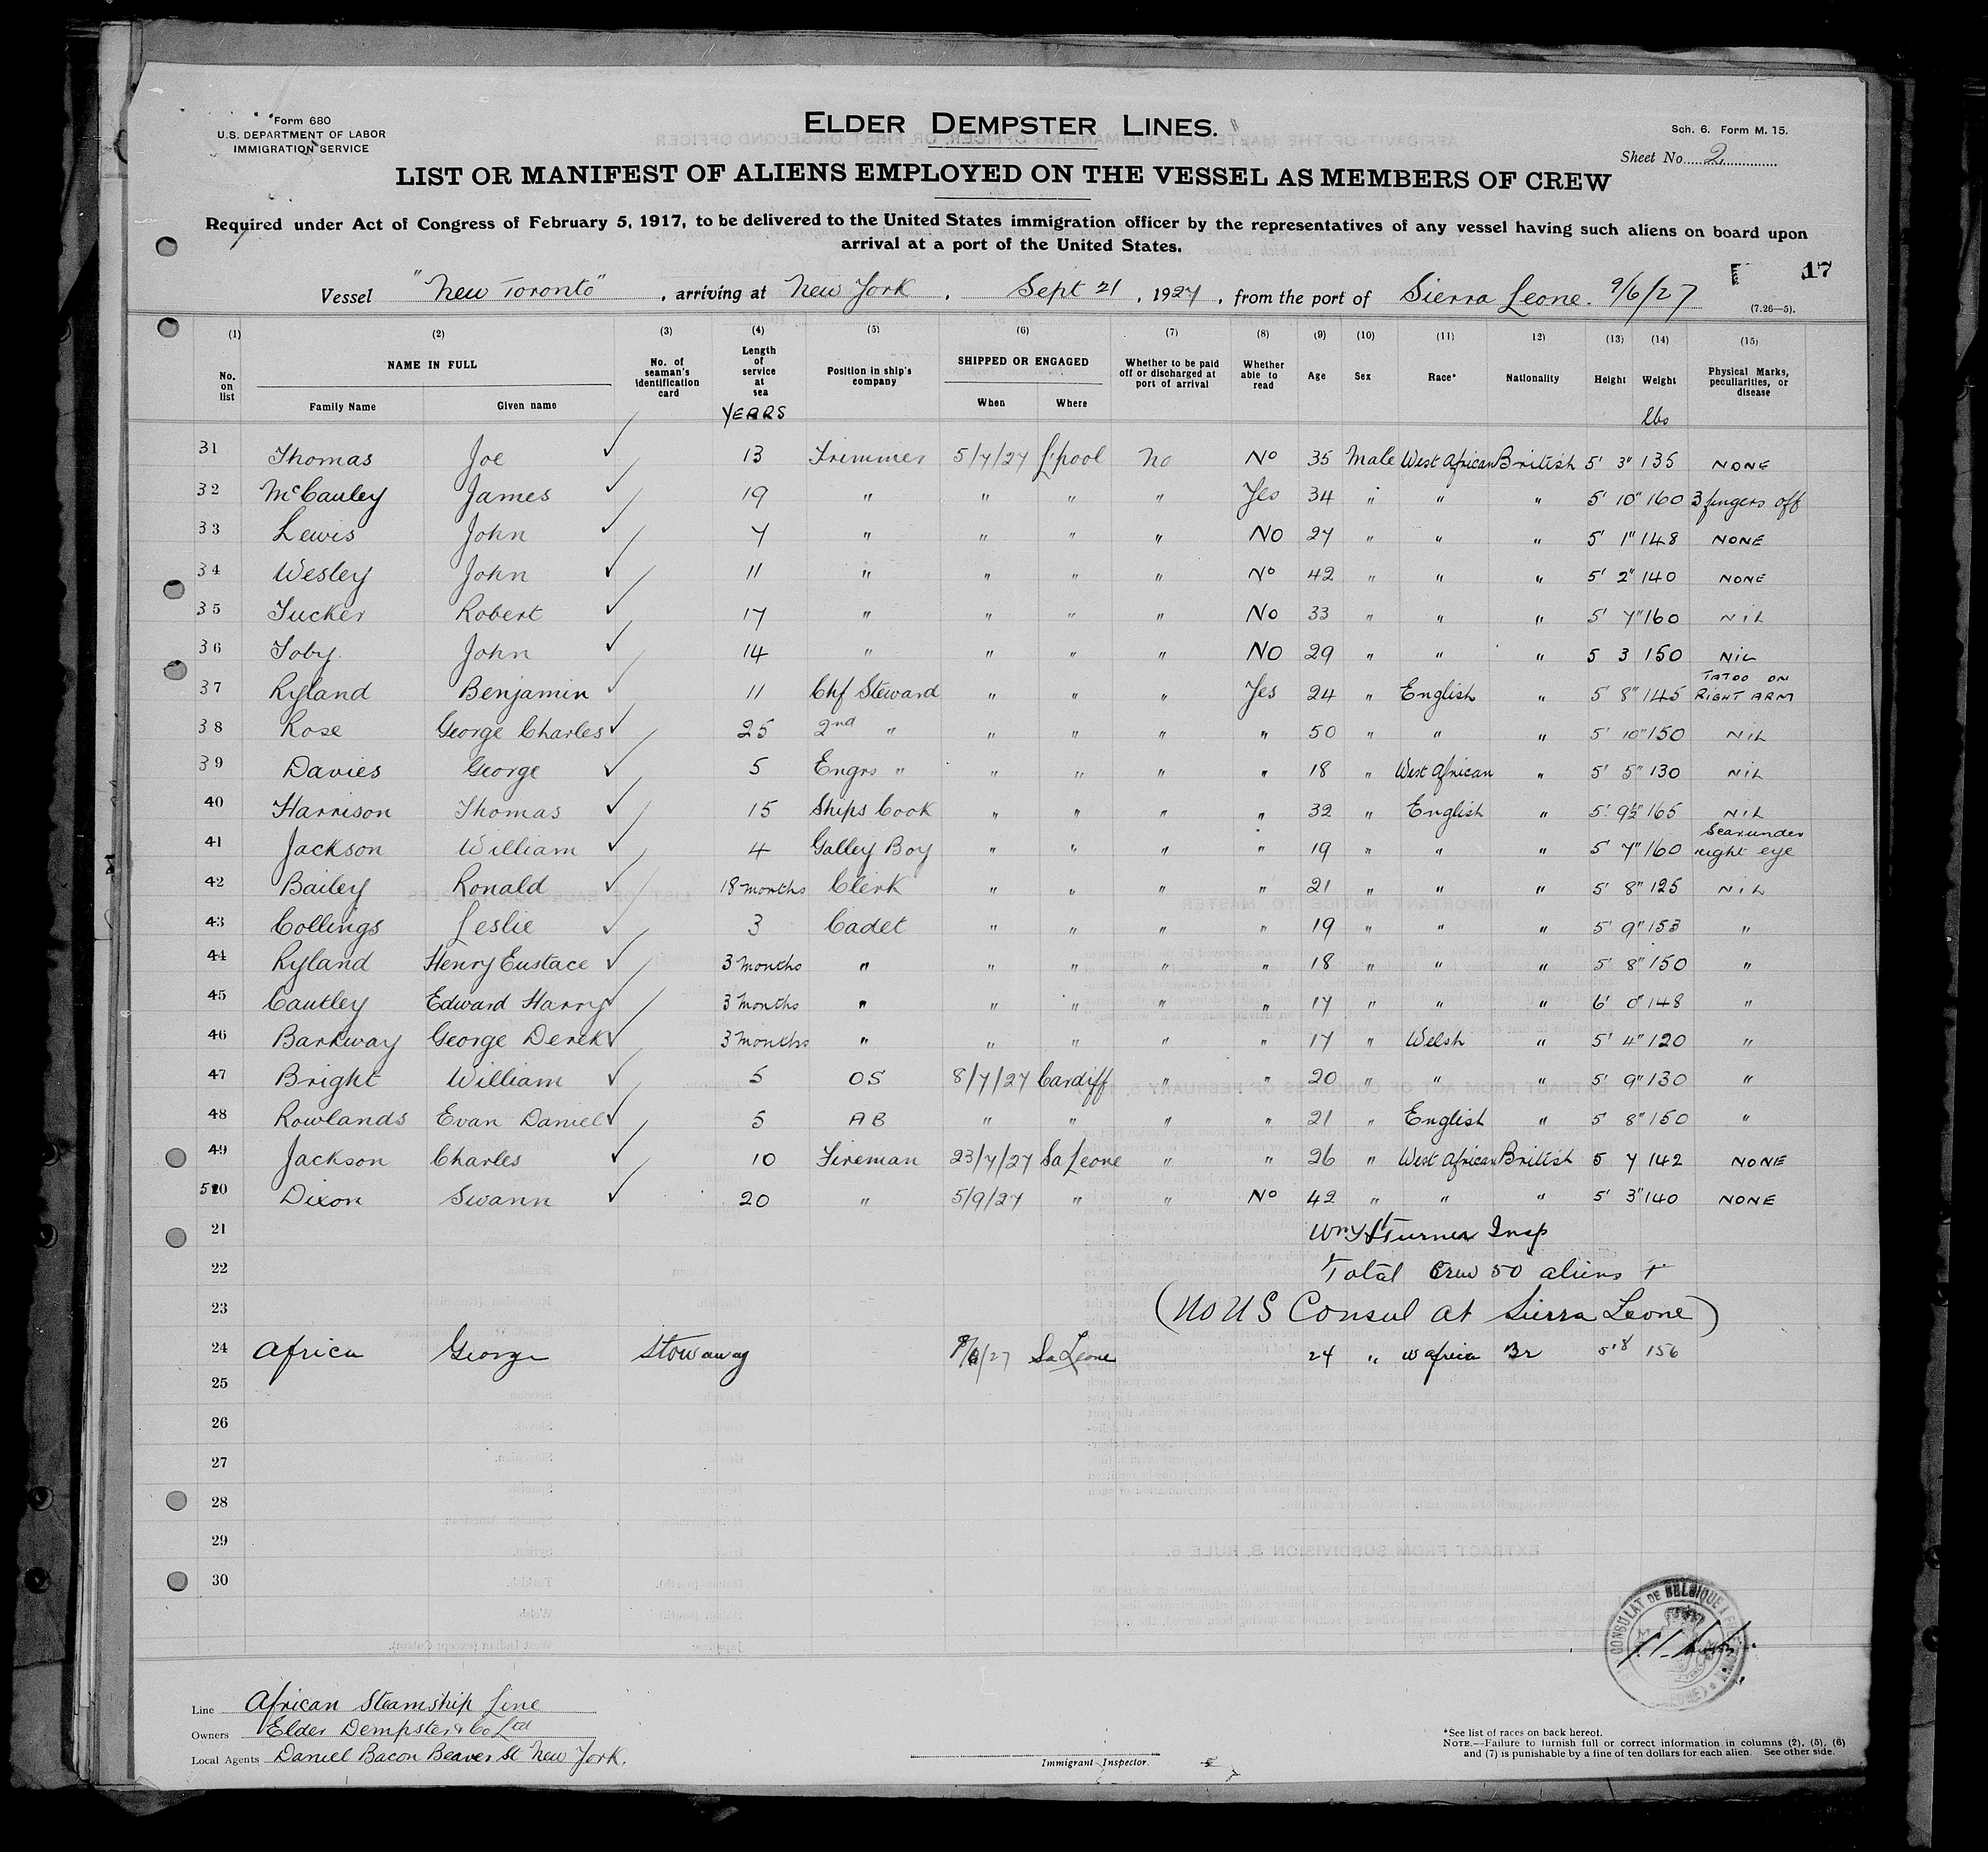 Form 680
U.S. DEPARTMENT OF LABOR
IMMIGRATION SERVICE
ELDER DEMPSTER LINES.
Sch. 6. Form M. 15.
Sheet No. 2
LIST OR MANIFEST OF ALIENS EMPLOYED ON THE VESSEL AS MEMBERS OF CREW
Required under Act of Congress of February 5, 1917, to be delivered to the United States immigration officer by the representatives of any vessel having such aliens on board upon
arrival at a port of the United States.
17
Vessel "New Toronto", arriving at New York, Sept 21, 1927, from the port of Sierra Leone. 9/6/27
(7.26—5).
(1) (2) (3) (4) (5) (6) (7) (8) (9) (10) (11) 12) (13) (14) (15)
No. on list NAME IN FULL Family Name Given name No. of seaman's identification card Length of service at sea YEARS Position in ship's company SHIPPED OR ENGAGED When Where Whether to be paid off or discharged at port of arrival Whether able to read Age Sex Race* Nationality Height Weight lbs Physical Marks, peculiarities, or disease
31 Thomas Joe ✓ 13 Trimmer 5/7/27 L'pool No No 35 Male West African British 5' 3" 135 NONE
32 McCauley James ✓ 19 " " " " Yes 34 " " " 5' 10" 160 3 fingers off
33 Lewis John ✓ 7 " " " " NO 27 " " " 5' 1" 148 NONE
34 Wesley John ✓ 11 " " " " No 42 " " " 5' 2" 140 NONE
35 Tucker Robert ✓ 17 " " " " No 33 " " " 5' 7" 160 NIL
36 Toby John ✓ 14 " " " " NO 29 " " " 5 3 150 NIL
37 Ryland Benjamin ✓ 11 Chf Steward " " " Yes 24 " English " 5' 8" 145 TATOO ON RIGHT ARM
38 Rose George Charles ✓ 25 2nd " " " " " 50 " " " 5' 10" 150 NIL
39 Davies George ✓ 5 Engrs " " " " " 18 " West African " 5' 5" 130 NIL
40 Harrison Thomas ✓ 15 Ships Cook " " " " 32 " English " 5' 9½" 165 NIL
41 Jackson William ✓ 4 Galley Boy " " " " 19 " " " 5' 7" 160 Scar under right eye
42 Bailey Ronald ✓ 18 months Clerk " " " " 21 " " " 5' 8" 125 NIL
43 Collings Leslie ✓ 3 Cadet " " " " 19 " " " 5' 9" 153 "
44 Ryland Henry Eustace ✓ 3 months " " " " " 18 " " " 5' 8" 150 "
45 Cautley Edward Harry ✓ 3 months " " " " " 17 " " " 6' 0" 148 "
46 Barkway George Derek ✓ 3 months " " " " " 17 " Welsh " 5' 4" 120 "
47 Bright William ✓ 5 OS 8/7/27 Cardiff " " 20 " " " 5' 9" 130 "
48 Rowlands Evan Daniel ✓ 5 AB " " " " 21 " English " 5' 8" 150 "
49 Jackson Charles ✓ 10 Fireman 23/7/27 Sa Leone " " 26 " West African British 5 7 142 NONE
50 Dixon Swann ✓ 20 " 5/9/27 " " No 42 " " " 5' 3" 140 NONE
21 Turner Insp
22 Total Crew 50 aliens
23 (No US Consul at Sierra Leone)
24 Africa George Stowaway 9/6/27 Sa Leone 24 " W Africa Br 5'8 156
25
26
27
28
29
30
CONSULAT DE BELGIQUE
Line African Steamship Line
Owners Elder Dempster & Co Ltd
Local Agents Daniel Bacon Beaver St New York.
Immigrant Inspector.
*See list of races on back hereof.
NOTE.—Failure to furnish full or correct information in columns (2), (5), (6)
and (7) is punishable by a fine of ten dollars for each alien. See other side.